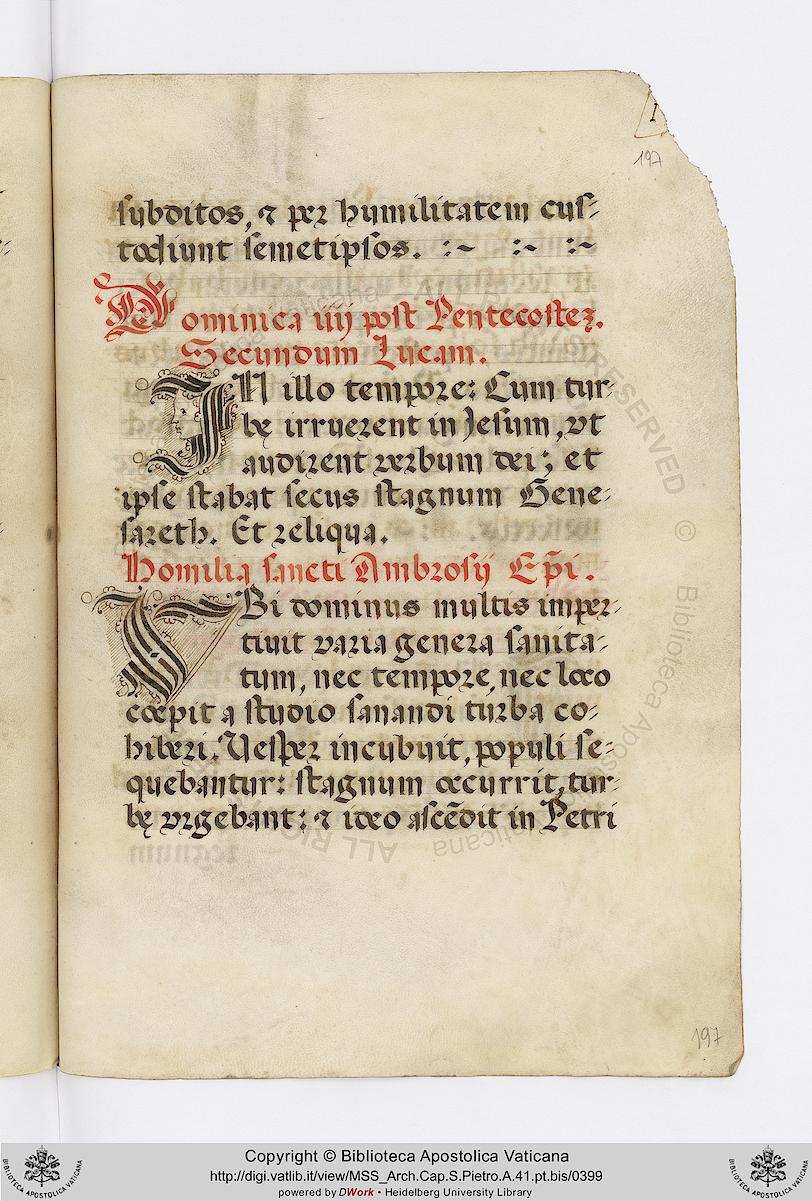 I
197
subditos, ⁊ per humilitatem cus-
todiunt semetipsos. :~ :~ :~
Dominica iiij post Pentecostez.
Secundum Lucam.
IN illo tempore: Cum tur-
bę irruerent in Jesum, vt
audirent verbum dei; et
ipse stabat secus stagnum Gene-
sareth. Et reliqua.
Homilia sancti Ambrosij Ep̃i.
VBi dominus multis imper-
tiuit varia genera sanita-
tum, nec tempore, nec loco
cœpit a studio sanandi turba co-
hiberi. Uesper incubuit, populi se-
quebantur: stagnum occurrit, tur-
bę vrgebant: ⁊ ideo ascẽdit in Petri
197
Copyright © Biblioteca Apostolica Vaticana
http://digi.vatlib.it/view/MSS_Arch.Cap.S.Pietro.A.41.pt.bis/0399
powered by DWork • Heidelberg University Library
BIBLIOTECA APOSTOLICA VATICANA
BIBLIOTECA APOSTOLICA VATICANA